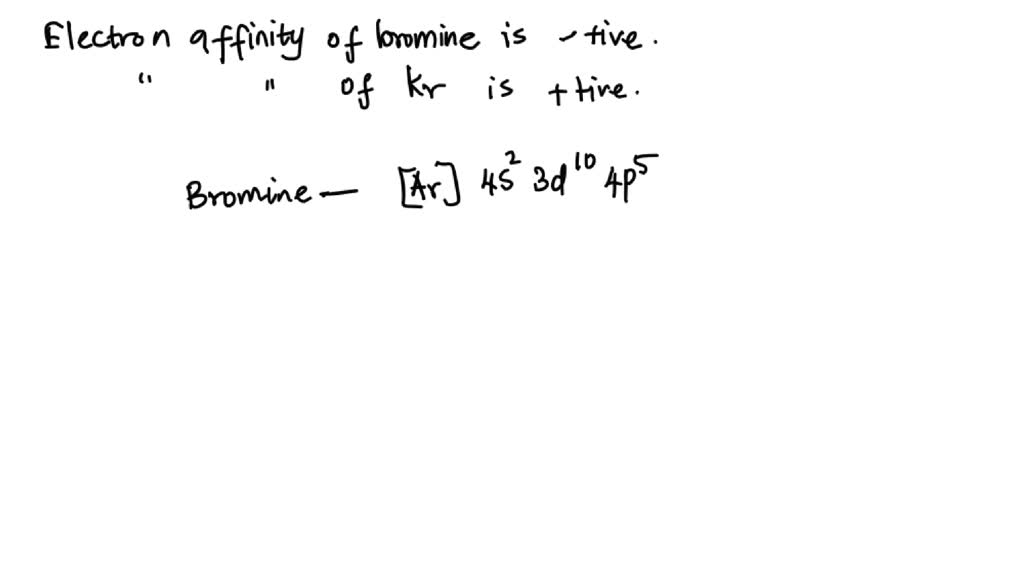 Electron affinity of bromine is -tive.
" " of Kr is +tive.
Bromine — [Ar] 4s² 3d¹⁰ 4p⁵